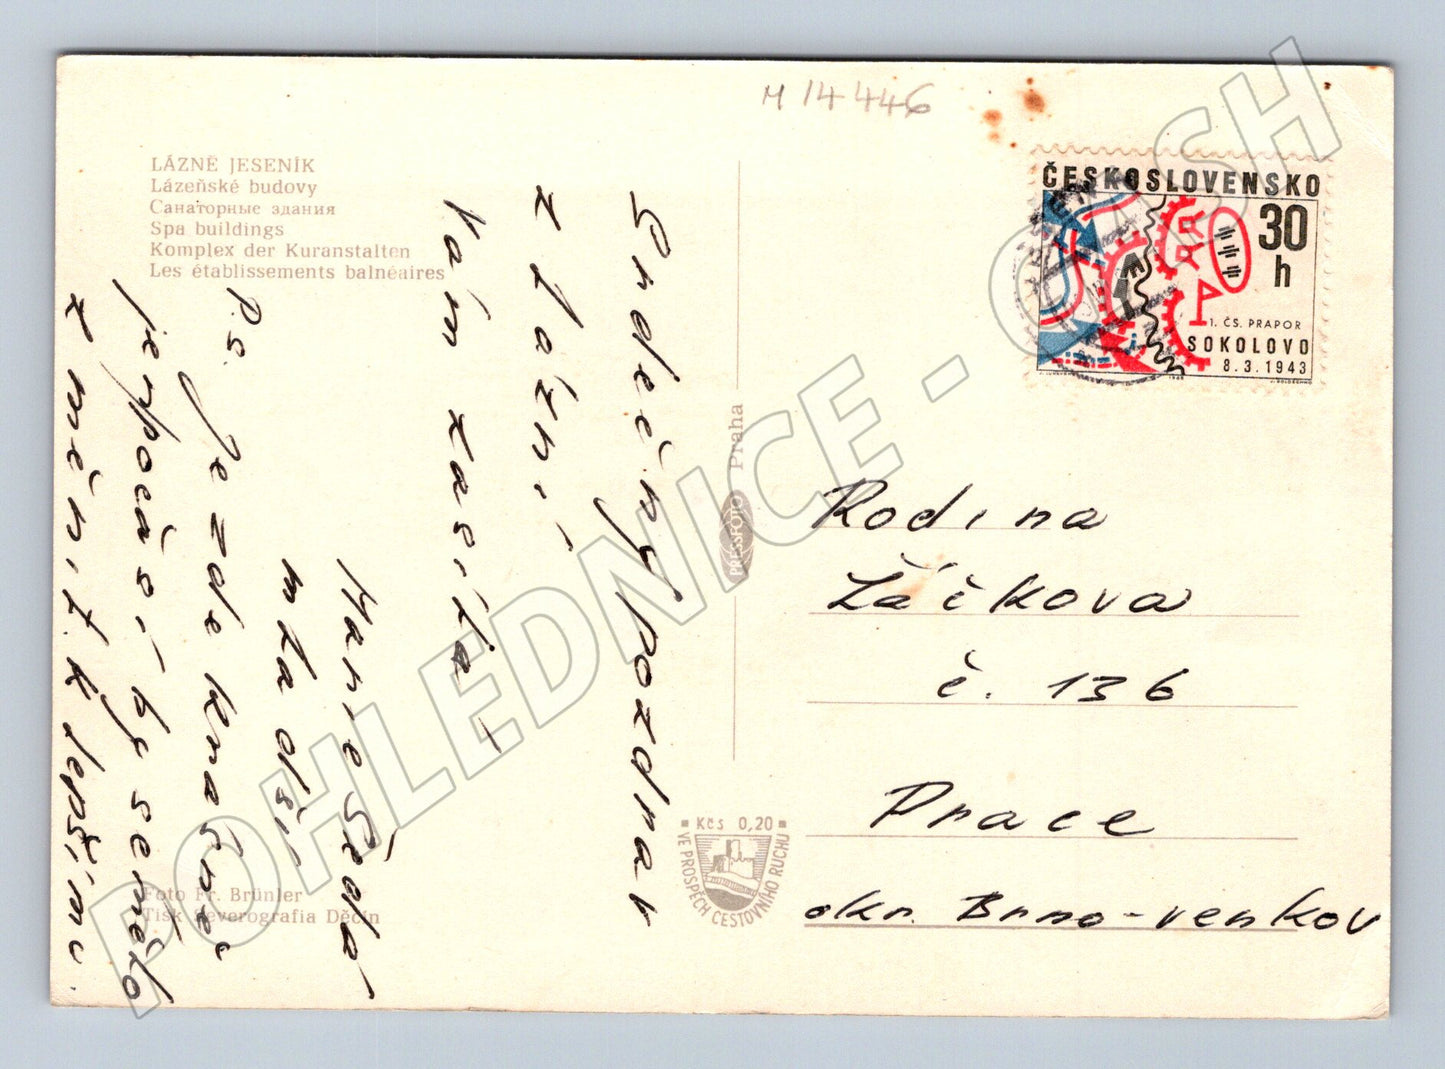 M 14 446
LÁZNĚ JESENÍK
Lázeňské budovy
Санаторные здания
Spa buildings
Komplex der Kuranstalten
Les établissements balnéaires
Srdečný pozdrav
z Lázní
Vám zasílá
Marie Šedá
mladší
P.S. Je zde krásně
jen počasí by se mělo
změnit k lepšímu
Foto Fr. Brünler
Tisk Severografia Děčín
PRESSFOTO Praha
Kčs 0,20
VE PROSPĚCH CESTOVNÍHO RUCHU
ČESKOSLOVENSKO
30 h
1. ČS. PRAPOR
SOKOLOVO
8.3.1943
Rodina
Žáčkova
č. 136
Prace
okr. Brno-venkov
POHLEDNICE - CASH